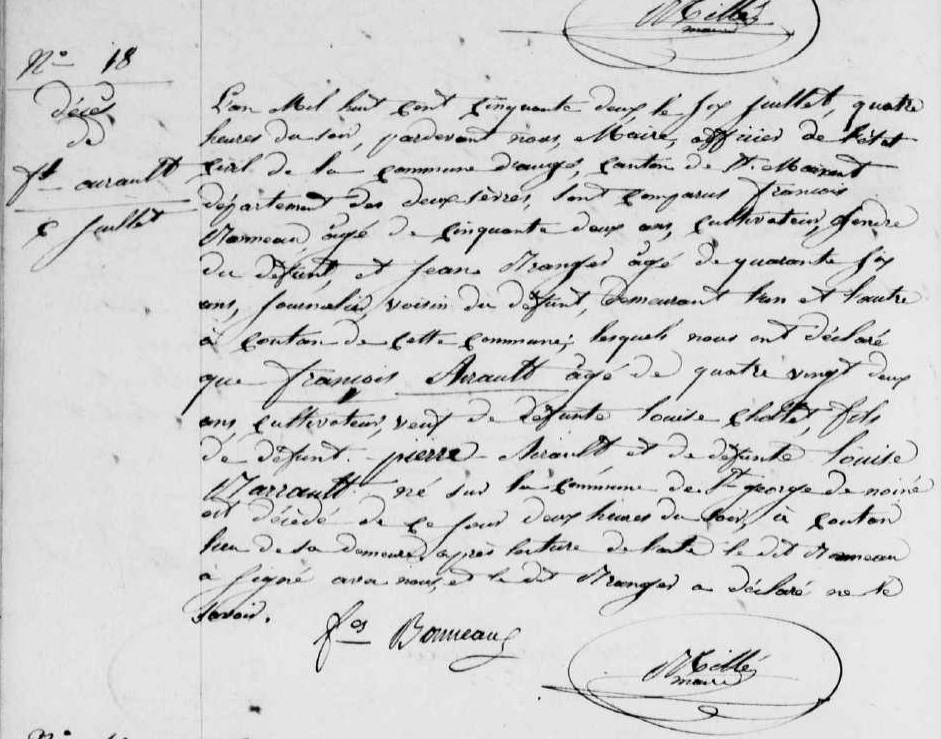 Millé
maire
N° 18
décès
de
f.s airault
6 juillet
L'an Mil huit cent cinquante deux, le six juillet, quatre
heures du soir, pardevant nous, Maire, officier de l'état
civil de la commune d'augé, canton de St. Maixent
département des deux sèvres, sont comparus françois
Bonneau âgé de cinquante deux ans, cultivateur, Gendre
du défunt, et Jean Branger âgé de quarante six
ans, journalier voisin du défunt, demeurant l'un et l'autre
à coutan de cette commune; lesquels nous ont déclaré
que françois Airault âgé de quatre vingt deux
ans cultivateur, veuf de défunte louise
fils
de défunt pierre Airault et de défunte louise
né sur la commune de St george de noiné
est décédé de ce jour deux heures du soir, à coutan
lieu de sa demeure, après lecture de l'acte le dit Bonneau
à signé avec nous, et le dit Branger a déclaré ne le
savoir.
f.os Bonneau
Millé
maire
N°